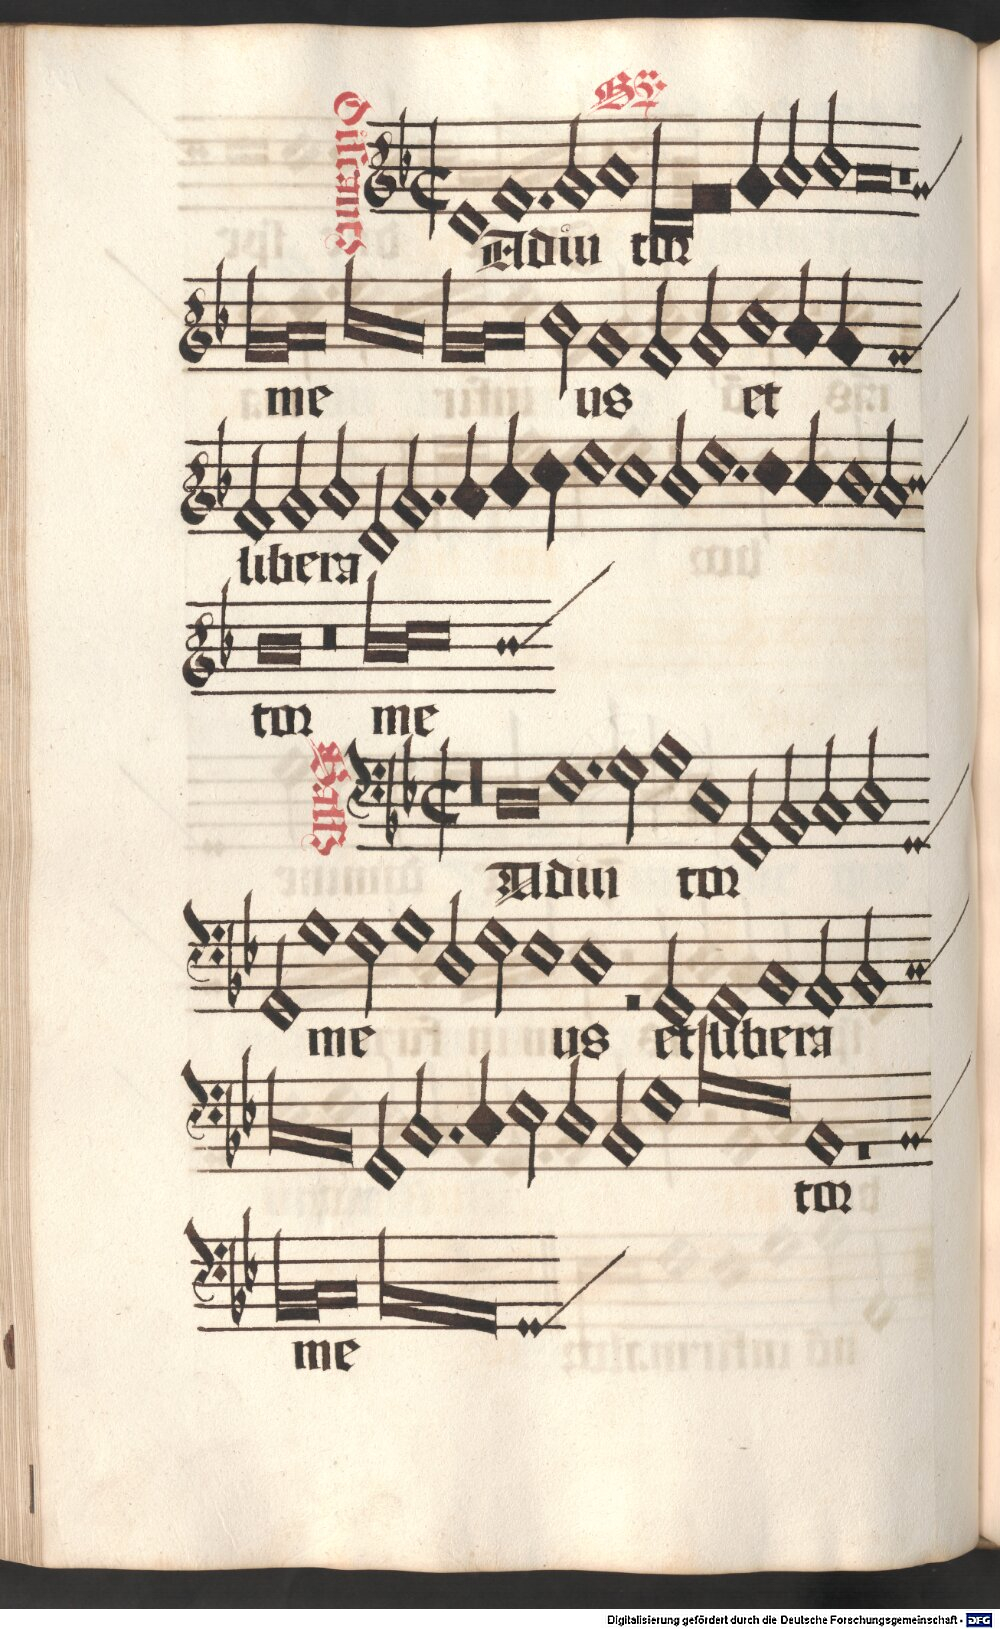 Discantus
Adiu tor
me us et
libera
tor me
Bass
Adiu tor
me us et libera
tor
me
Digitalisierung gefördert durch die Deutsche Forschungsgemeinschaft - DFG